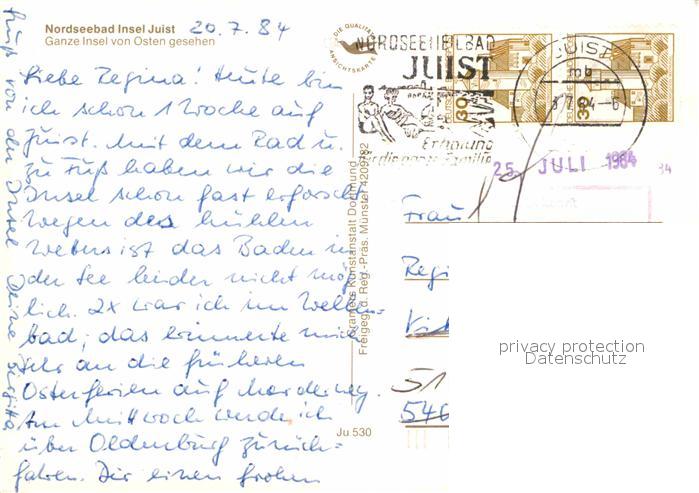 Nordseebad Insel Juist 20.7.84
Ganze Insel von Osten gesehen
Liebe Regina! Heute bin
ich schon 1 Woche auf
Juist. Mit dem Rad u.
zu Fuß haben wir die
Insel schon fast erforscht
Wegen des kühlen
Wetters ist das Baden in
der See leider nicht mög-
lich. 2x war ich im Wellen-
bad, das erinnerte mich
sehr an die früheren
Osterferien auf Norderney.
Am Mittwoch werde ich
über Oldenburg zurück=
fahren. Dir einen frohen
Gruß von der Insel Deine Brigitta
DIE QUALITÄTS
ANSICHTSKARTE
Cramers Kunstanstalt Dortmund
Freigeg. d. Reg.-Präs. Münster 4209/82
Ju 530
NORDSEEHEILBAD
JUIST
Erholung
für die ganze Familie
JUIST
mb
30
30
25. JULI 1984
34
Frau
Regi
51
546
privacy protection
Datenschutz